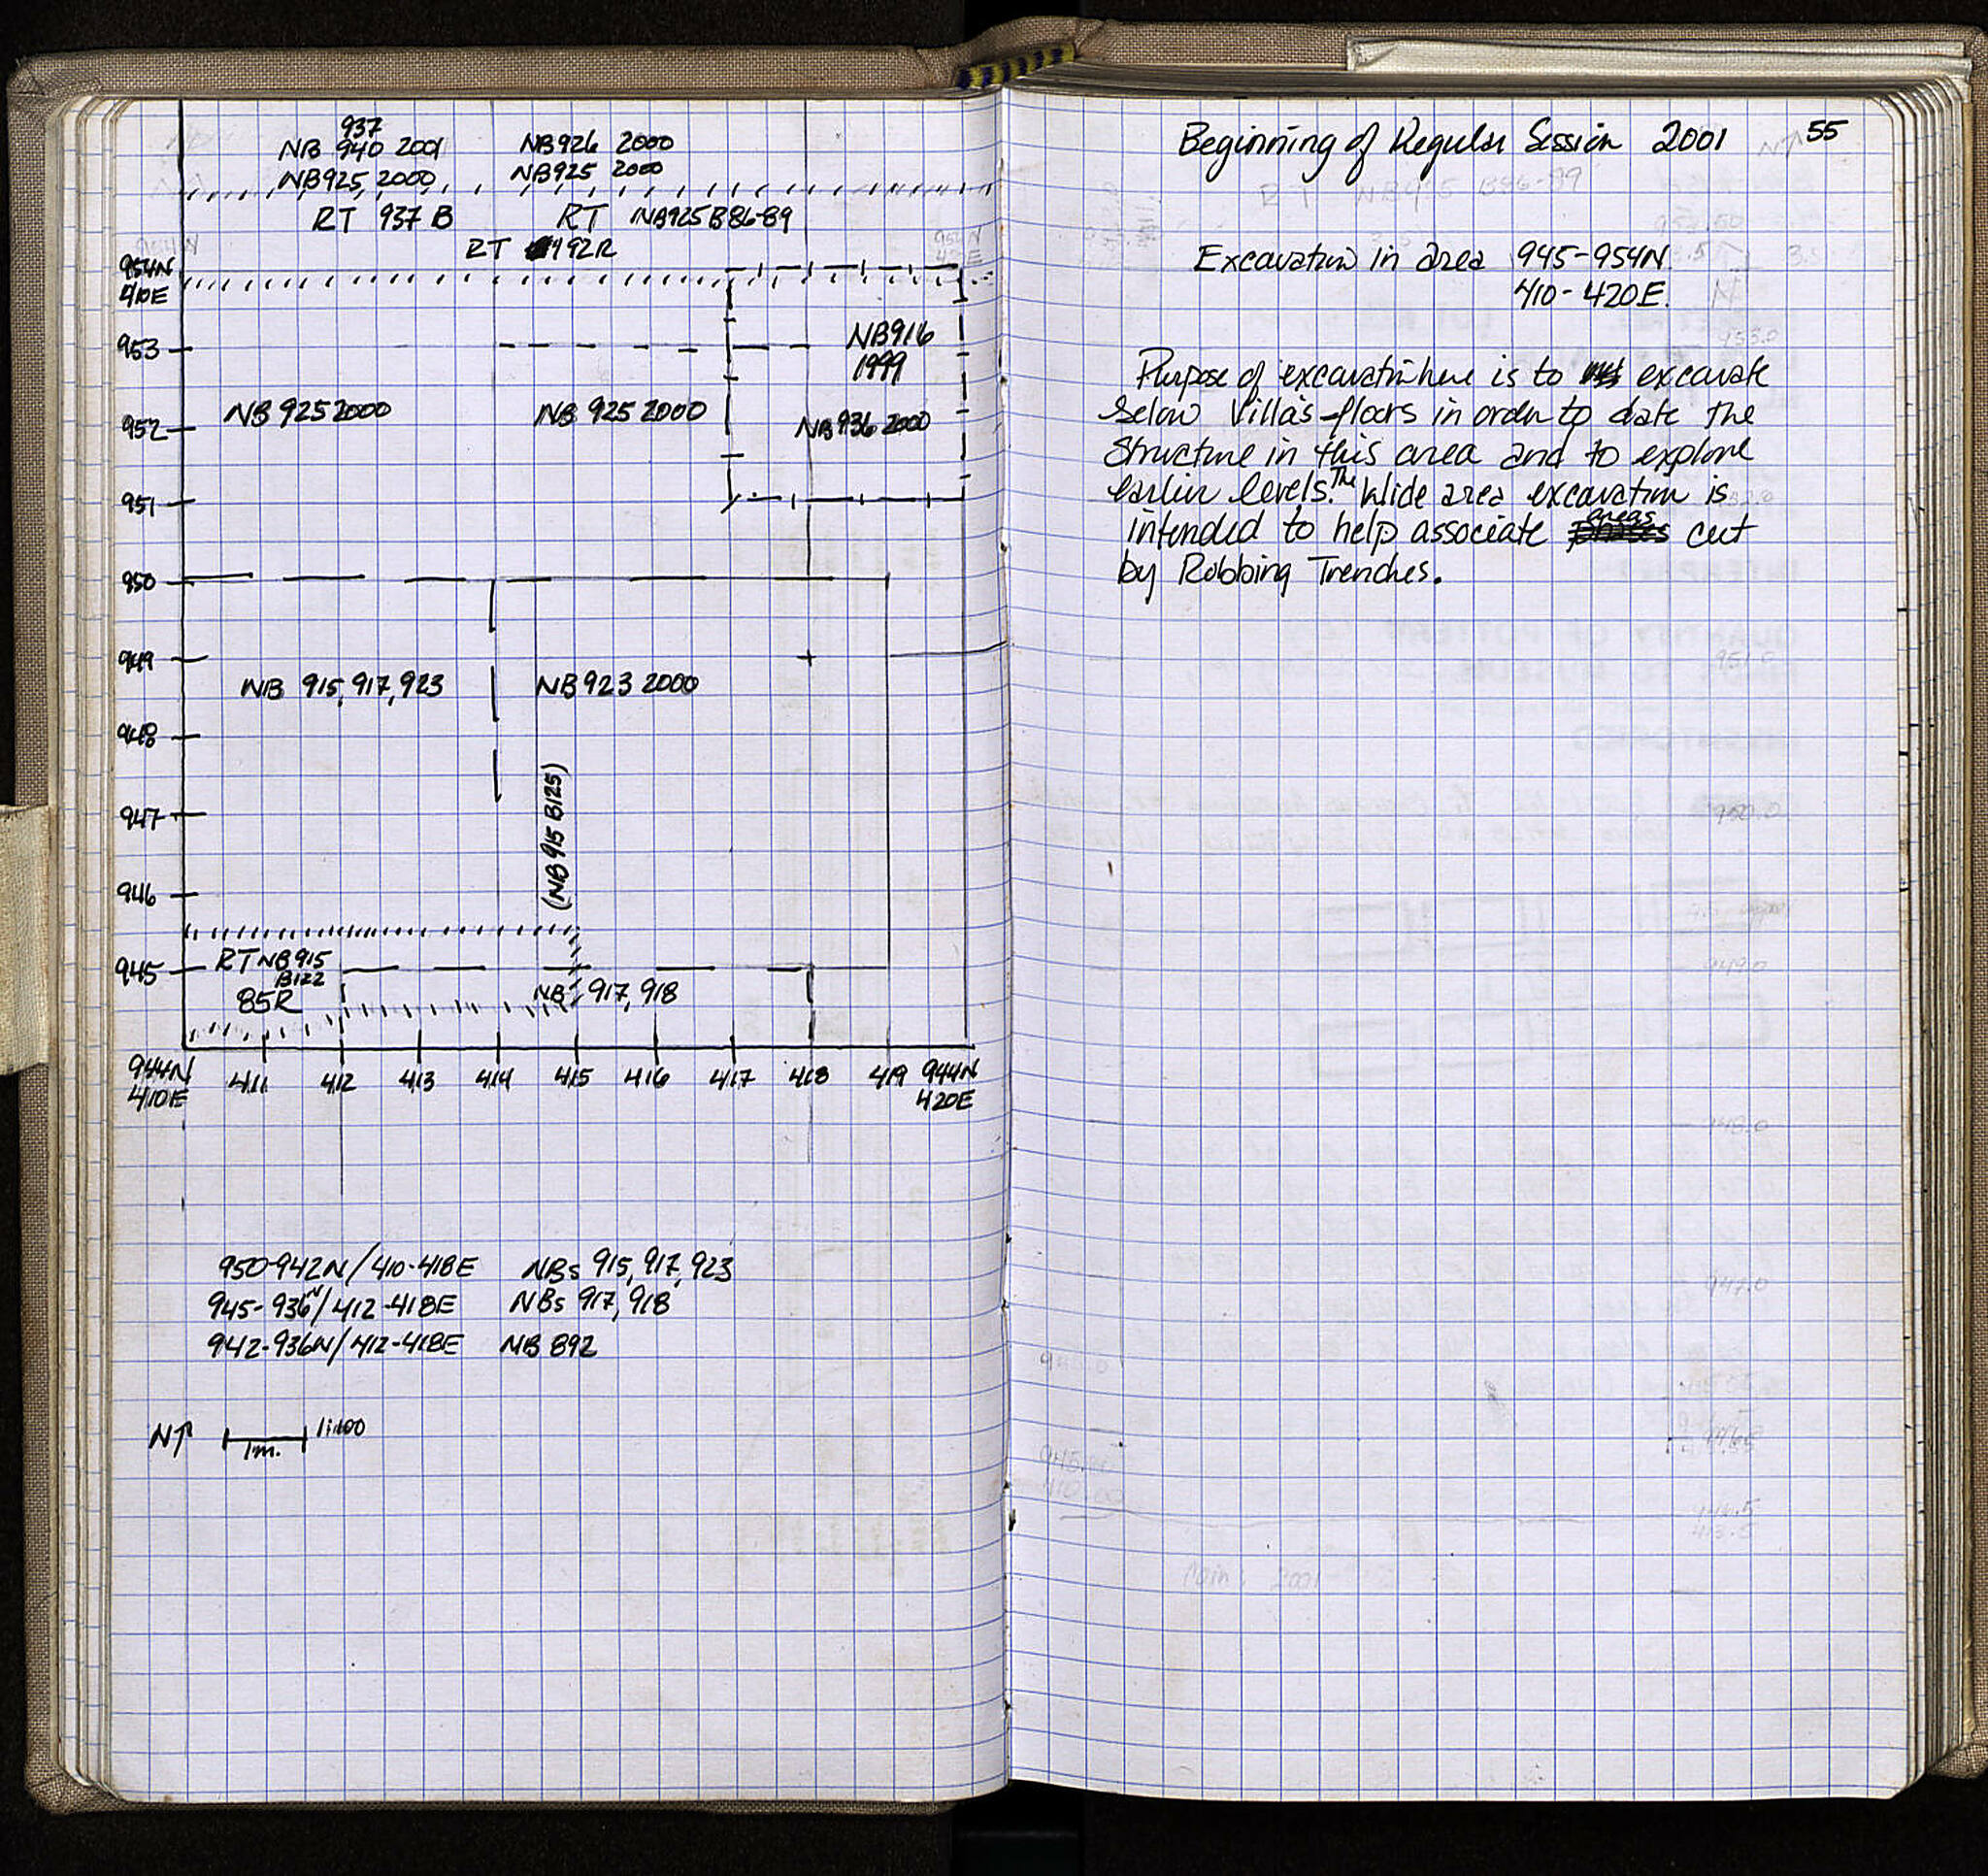 937
NB 940 2001
NB925, 2000
NB926 2000
NB925 2000
RT 937 B
RT NB925 B86-89
RT 192R
954N
410E
953
952
951
950
949
948
947
946
945
NB916
1999
NB 925 2000
NB 925 2000
NB 936 2000
NB 915, 917, 923
NB 923 2000
(NB 915 B125)
RT NB 915
B122
85R
NB 917, 918
944N
410E
411
412
413
414
415
416
417
418
419
944N
420E
950-942N/410-418E NBs 915, 917, 923
945-936N/412-418E NBs 917, 918
942-936N/412-418E NB 892
N↑
1m.
1:100
Beginning of Regular Session 2001
55
Excavation in area 945-954N.
410-420E.
Purpose of excavation here is to excavate
below Villa's floors in order to date the
structure in this area and to explore
earlier levels. The Wide area excavation is
intended to help associate areas cut
by Robbing Trenches.